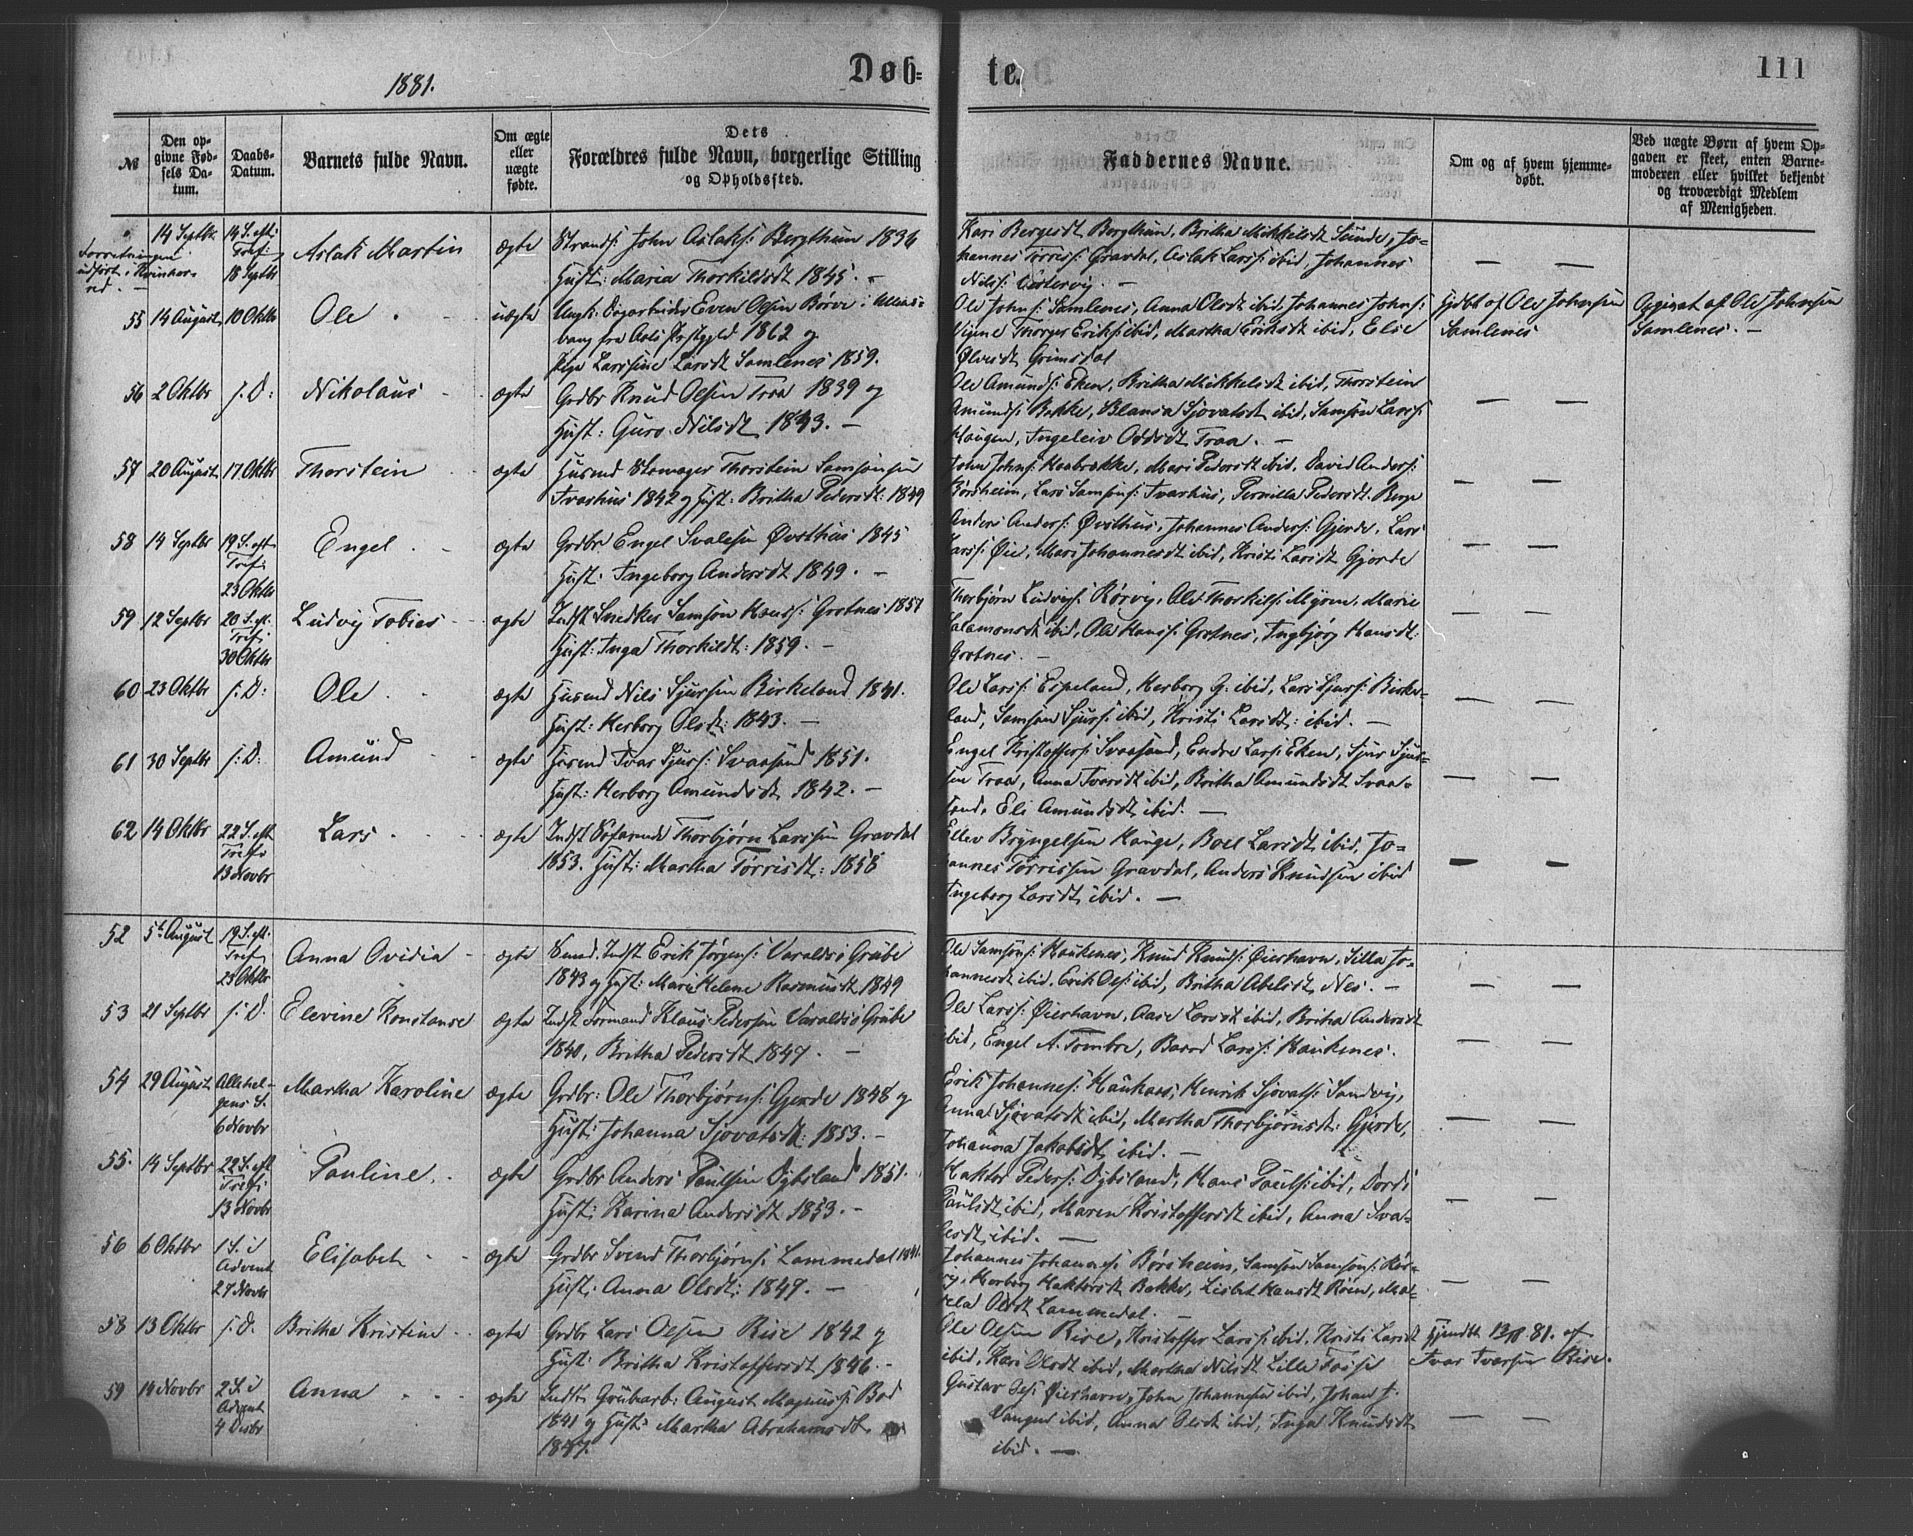 1881.
Døb=
te.
111
№
Den op-
givne Fød-
sels Da-
tum.
Daabs-
Datum.
Barnets fulde Navn.
Om ægte
eller
uægte
fødte.
Dets
Forældres fulde Navn, borgerlige Stilling
og Opholdssted.
Faddernes Navne.
Om og af hvem hjemme-
døbt.
Ved uægte Børn af hvem Op-
gaven er skeet, enten Barne-
moderen eller hvilket bekjendt
og troværdigt Medlem
af Menigheden.
Forretningen
udført i Kvinhers
red. —
14 Septbr
14 S. eft.
Tref.
18 Septbr
Aslak Martin
ægte
Strands. John Aslaks: Bergthun 1836
Hust: Maria Thorkildsdt 1845. –
Kari Bergesdt Bergthun, Britha Mikkelsdt Sunde, Jo-
hannes Tørress: Gravdal, Aslak Larss: ibid, Johannes
Nilss: —
55 14 August 10 Oktbr
Ole
uægte
Ungk: Dagarbeider Even Olsen Børve i
bang fra Præstgjeld 1862 og
Pige Larssine Larsdt Samlenes 1859.
Ole Johns: Samlenes, Anna Olsdt ibid, Johannes Johns:
Thorger Eriks: ibid, Martha Eriksdt ibid, Elsie
Grimsdal
Hjdbt af Ole Johnsen
Samlenes
Opgivet af Ole Johnsen
Samlenes. —
56 2 Oktbr s. D:
Nikolaus
ægte
Grdbr Knud Olsen Traa 1839 og
Hust: Guro Nilsdt 1843. —
Ole Amunds: Eken, Britha Mikkelsdt ibid, Thorstein
Amunds: Bakke, Blansa Sjovatsdt ibid, Samson Larss:
Haugen, Ingeleiv Oddsdt Traa. —
57 20 August 17 Oktbr
Thorstein
ægte
Husmd Skomager Thorstein Samsonsen
Tvarhus 1842 og Hust: Britha Pedersdt. 1849
John Johns: Haabrekke, Mari Pedersdt ibid, David Anders:
Børsheim, Lars Samsons: Tvarhus, Pernilla Pedersdt. Berge
58 14 Septbr
19 S. eft
Tref:
23 Oktbr
Engel
ægte
Grdbr Engel Svalesen Øvsthus 1845
Hust: Ingeborg Andersdt 1849. —
Anders Anders: Øvsthus, Johannes Anders: Gjerde, Lars
Larss: Øie, Mari Johannesdt ibid, Kristi Larsdt Gjerde
59 12 Septbr
20 S. eft.
Tref:
30 Oktbr
Ludvig Tobias
ægte
Indst Snedker Samson Hanss: Grotnes 1857
Hust: Inga Thorkildt: 1859. —
Thorbjørn Ludvigs: Rørvig, Ole Thorkils: Myren, Marie
Salamonsdt ibid, Ole Hanss: Grotnes, Ingbjørg Hansdt:
Grotnes. —
60 23 Oktbr s. D:
Ole
ægte
Husmd Nils Sjursen Birkeland 1841.
Hust: Herborg Olsdt: 1843. —
Ole Larss: Espeland, Herborg G: ibid, Lars Sjurs: Birke-
land, Samson Sjurs: ibid, Kristi Larsdt: ibid. —
61 30 Septbr s. D:
Amund
ægte
Husmd Ivar Sjurs: Svaasand 1851.
Hust: Herborg Amundsdt 1842. —
Engel Kristoffers: Svaasand, Endre Lars: Eken, Sjur Sjur-
sen Traa, Anna Ivarsdt ibid, Britha Amundsdt Svaa-
sand, Eli Amundsdt ibid. —
62 14 Oktbr
22 S. eft
Tref:
13 Novbr
Lars
ægte
Indst Søfarende Thorbjørn Larssen Gravdal
1853. Hust: Martha Tørrisdt: 1858
Ellev Bryngelsen Hauge, Boel Larsdt, ibid, Jo-
hannes Tørrissen Gravdal, Anders Knudsen ibid
Ingeborg Larsdt ibid. —
52 5te August
19 S. eft.
Tref
23 Oktbr
Anna Ovidia
ægte
Smed. Indst Erik Jørgens: Varaldsø Grube
1843 og Hust: Mari Helene Rasmusdt 1849
Ole Samsons: Haukenes, Knud Knuds: Øierhavn, Silla Jo-
hannesdt ibid, Erik Ols: ibid, Britha Abelsdt Nes. —
53 21 Septbr s. D.
Elevine Konstanse
ægte
Indst Formand Klaus Pedersen Varaldsø Grube
1840, Britha Pedersdt 1847. —
Ole Larss: Øierhavn, Aase Larsdt ibid, Britha Andersdt
ibid, Engel A. Tombre, Baard Larss: Haukenes.
54 29 August
Allehel-
gens S.
6 Novbr
Martha Karoline
ægte
Grdbr: Ole Thorbjørns: Gjerde 1848 og
Hust: Johanna Sjovatsdt: 1853. —
Erik Johannes: Haukaas, Henrik Sjovats: Sandvig,
Anna Sjovatsdt ibid, Martha Thorbjørnsdt: Gjerde,
Johanna Jakobsdt ibid. —
55. 14 Septbr
22 S. eft
Tref:
13 Novbr
Pauline
ægte
Grdbr Anders Paulsen Dybsland 1851.
Hust: Karina Andersdt 1853. —
Haktor Peders: Dybsland, Hans Pauls: ibid, Dordi
Paulsdt ibid, Maren Kristoffersdt ibid, Anna Sva-
lesdt, ibid. —
56 6 Oktbr
1 S. i
Advent
27 Novbr
Elisabet
ægte
Grdbr Svend Thorbjørns: Lammedal 1841.
Hust: Anna Olsdt: 1847. —
Johannes Johannes: Børsheim, Samson Samsons: Rør-
vig, Herborg Haktorsdt Bakke, Lisbet Hansdt Røen, Ma-
Olsdt Lammedal. —
58 13 Oktbr s. D.
Britha Kristine
ægte
Grdbr Lars Olsen Rise 1842 og
Hust: Britha Kristoffersdt 1846. –
Ole Olsen Rise, Kristoffer Larss: ibid, Kristi Larsdt
ibid, Kari Olsdt ibid, Martha Nilsdt Lille
Hjemdbt 81. af
Ivar Ivarsen Rise.
59 14 Novbr
2 S. i
Advent
4 Desbr
Anna
ægte
Indst Grubearb: August Magnuss: Bod
1841 og Hust: Martha Abrahamsdt
1847.
Gustav Øierhavn, John Johannesen ibid, Johan J.
Vangen ibid, Anna Olsdt ibid, Inga Knudsdt
ibid. —